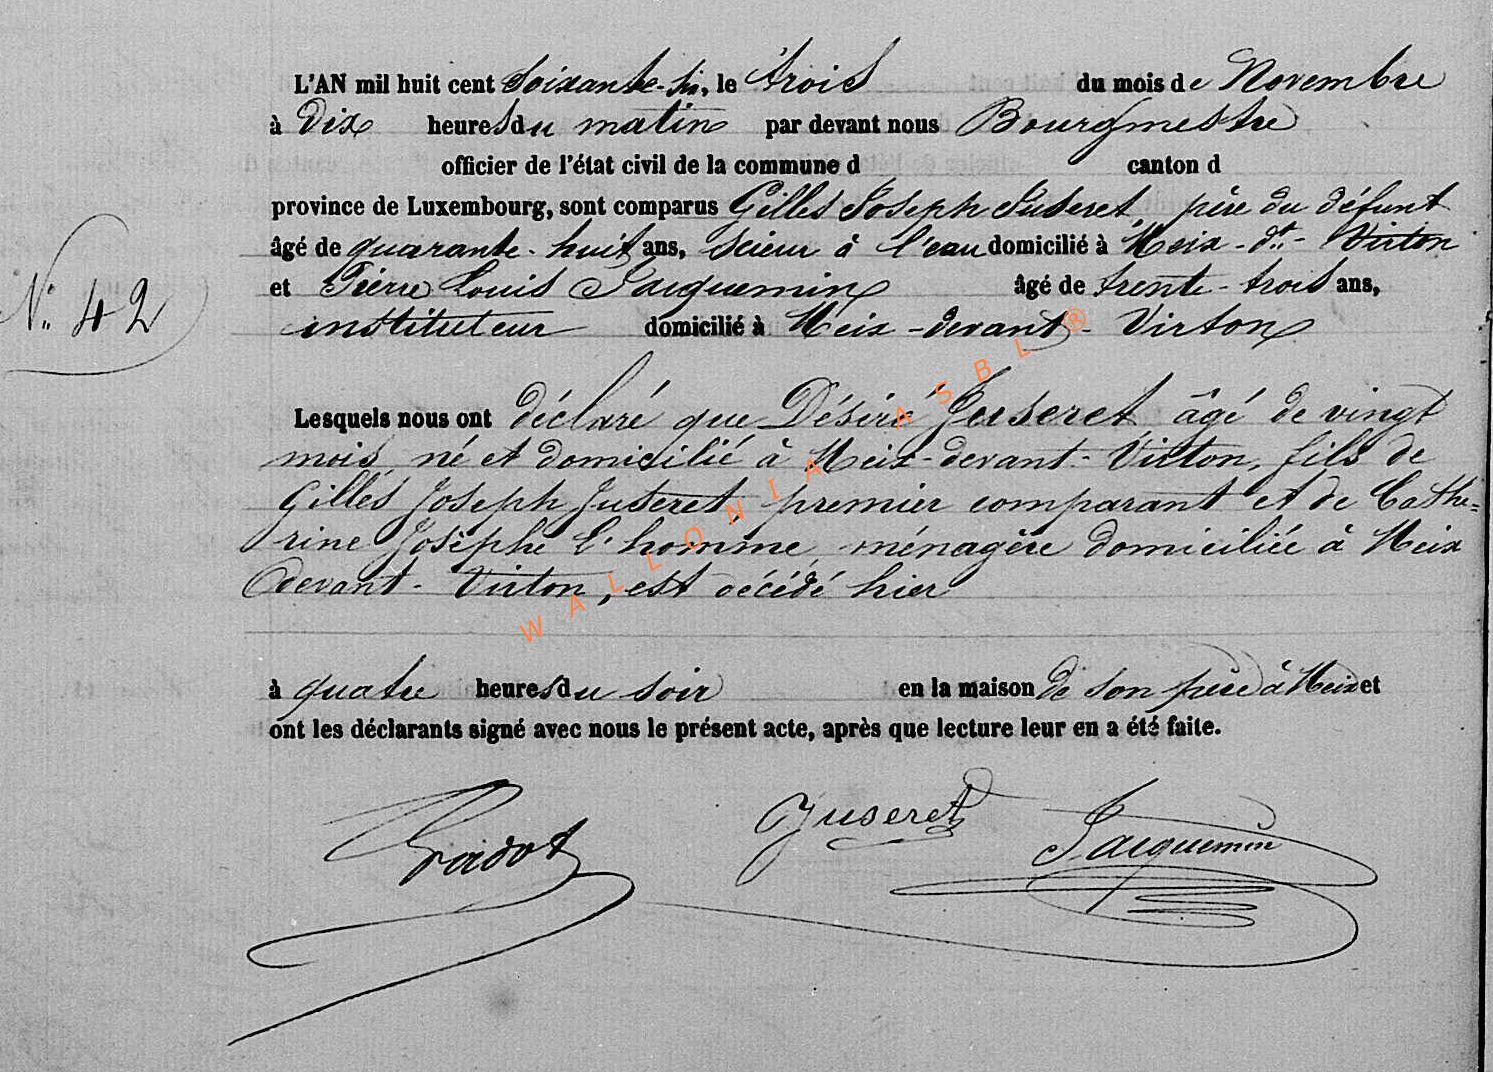 L'AN mil huit cent soixante-six, le trois du mois de Novembre
à dix heures du matin par devant nous Bourgmestre
officier de l'état civil de la commune d canton d
province de Luxembourg, sont comparus Gilles Joseph Juseret, père du défunt
âgé de quarante-huit ans, scieur à l'eau domicilié à Meix-dt-Virton
et Pierre Louis Jacquemin âgé de trente-trois ans,
instituteur domicilié à Meix-devant-Virton
N° 42
Lesquels nous ont déclaré que Désiré Juseret âgé de vingt
mois, né et domicilié à Meix-devant-Virton, fils de
Gilles Joseph Juseret, premier comparant et de Cathe=
rine Josèphe L'homme, ménagère domiciliée à Meix
devant-Virton, est décédé hier
à quatre heures du soir en la maison de son père à Meix et
ont les déclarants signé avec nous le présent acte, après que lecture leur en a été faite.
Juseret
Jacquemin
WALLONIA ASBL ®